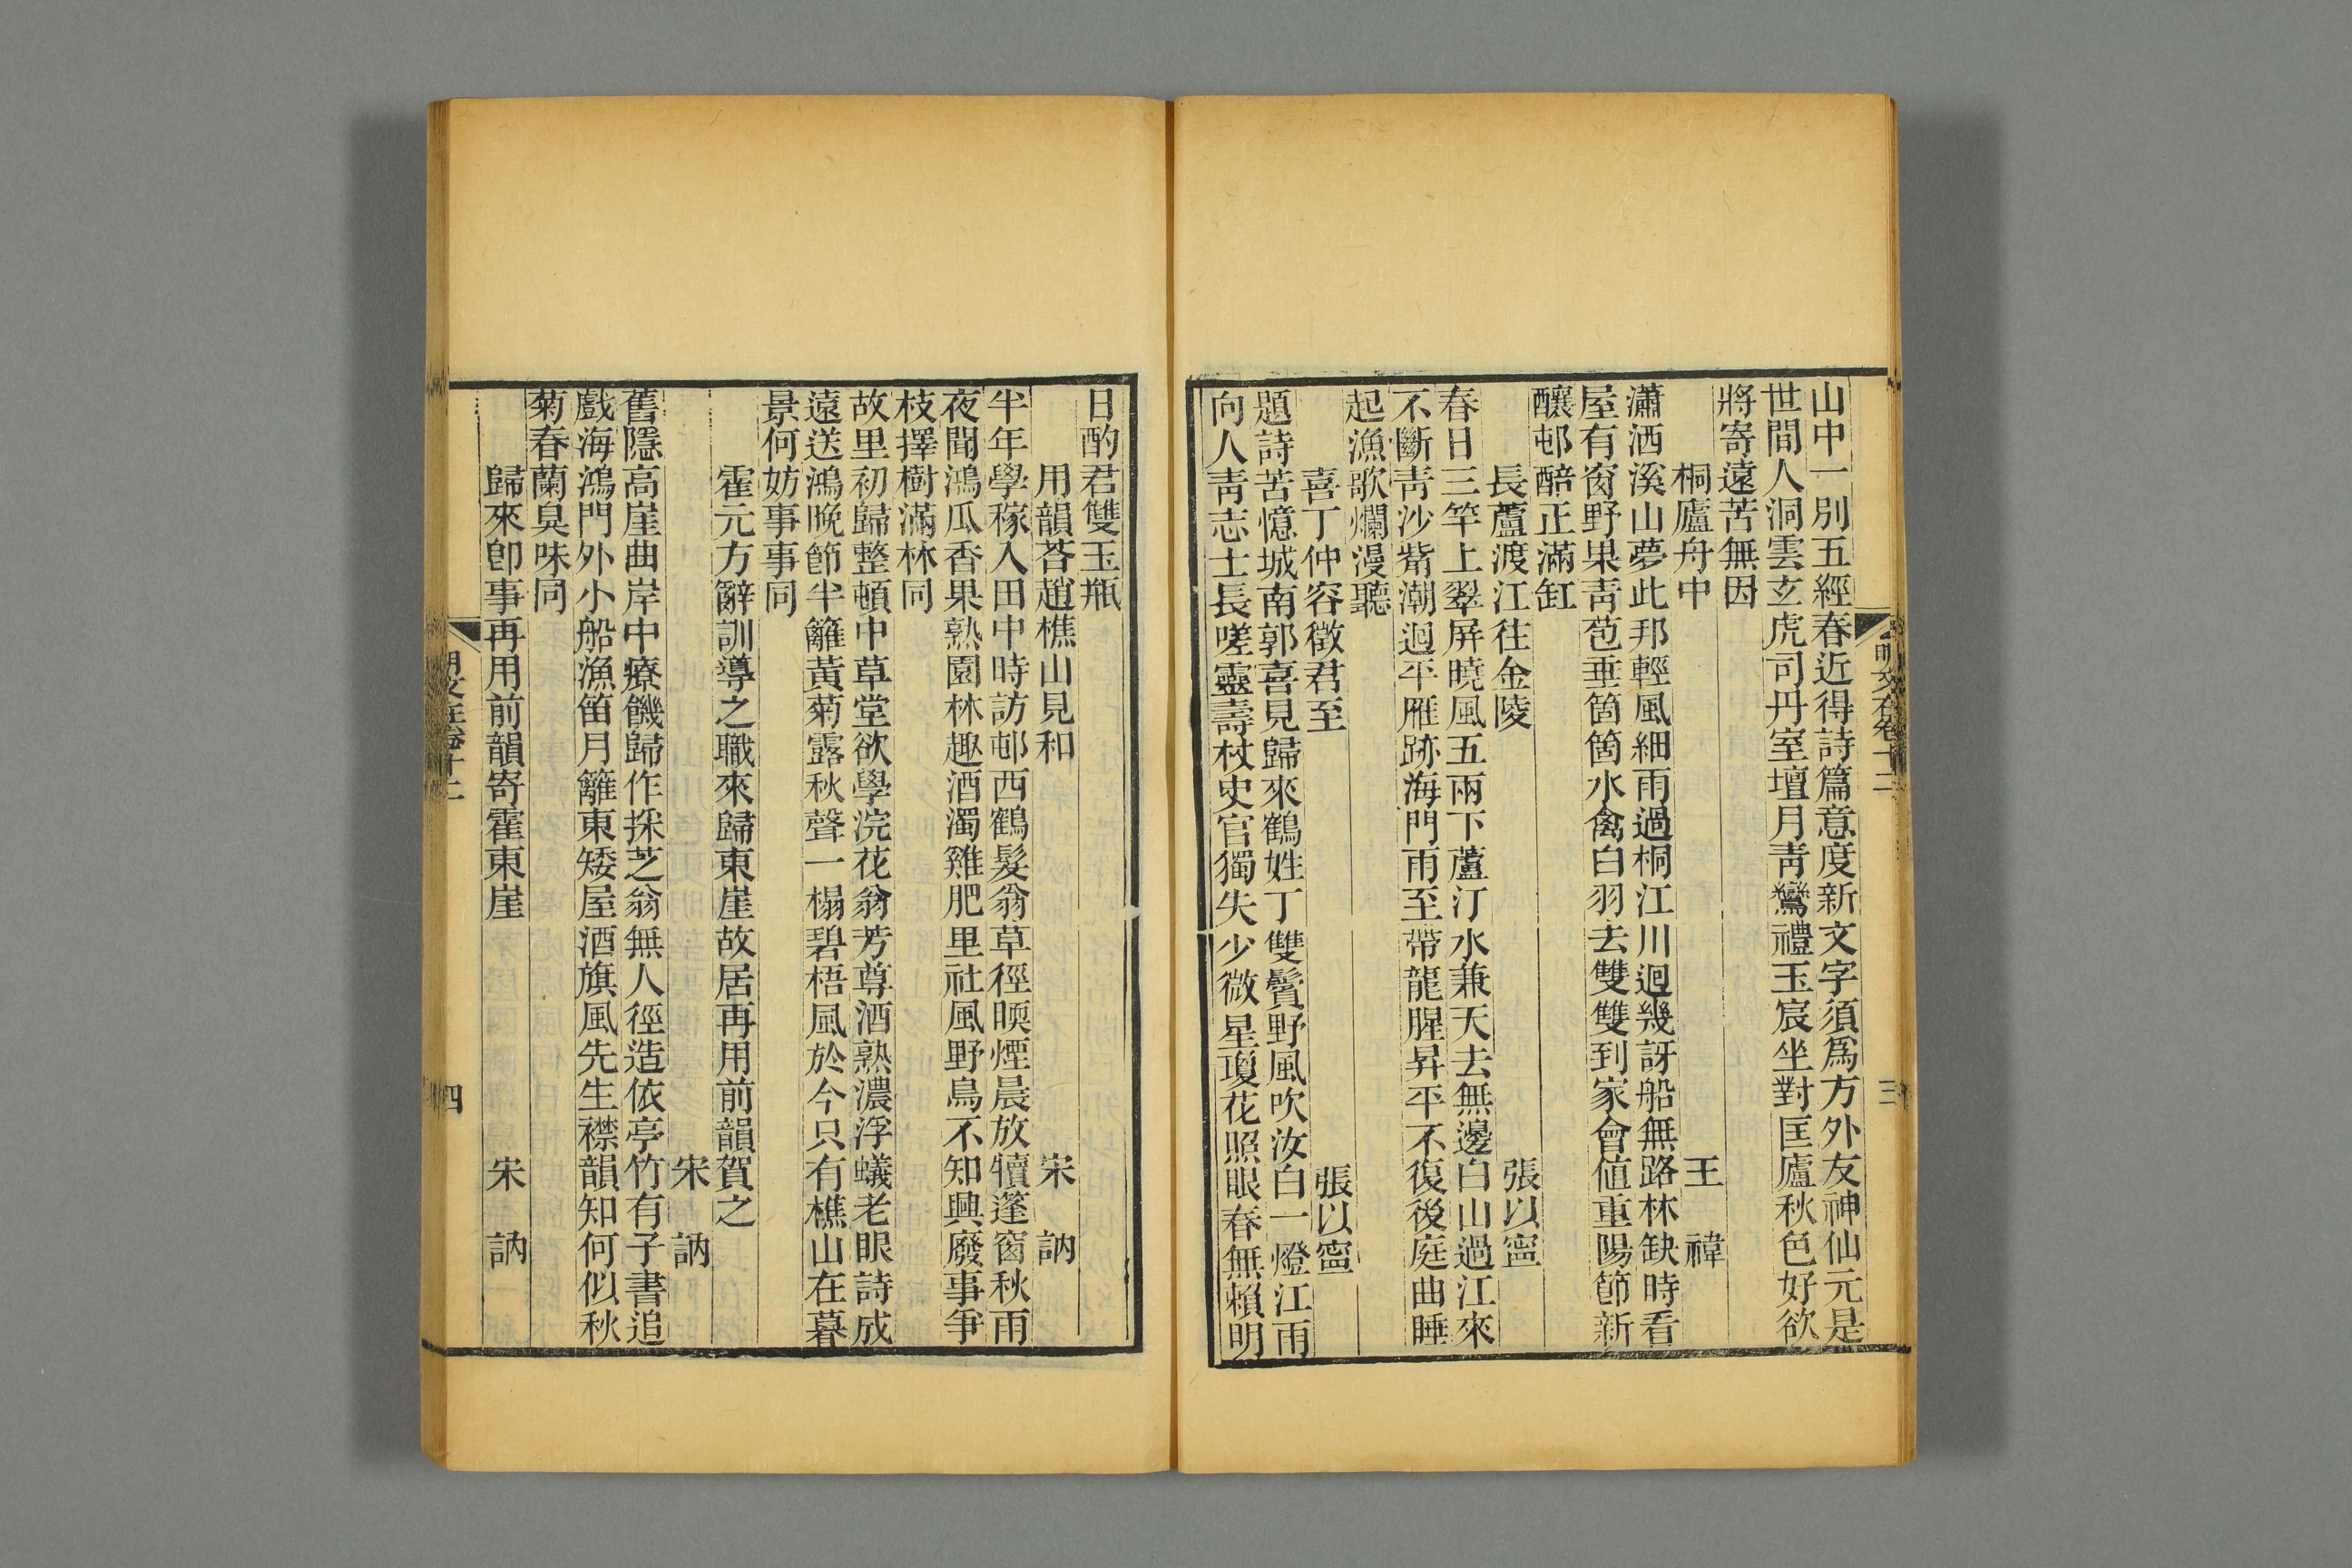 山中一別五經春近得詩篇意度新文字須爲方外友神仙元是
世間人洞雲玄虎司丹室壇月靑鸞禮玉宸坐對匡廬秋色好欲
將寄遠苦無因
桐廬舟中 王 禕
瀟洒溪山夢此邦輕風細雨過桐江川迴幾訝船無路林缺時看
屋有窗野果靑苞垂箇箇水禽白羽去雙雙到家會値重陽節新
釀邨醅正滿缸
長蘆渡江往金陵 張以寧
春日三竿上翠屏曉風五兩下蘆汀水兼天去無邊白山過江來
不斷靑沙觜潮迴平雁跡海門雨至帶龍腥昇平不復後庭曲睡
起漁歌爛漫聽
喜丁仲容徵君至 張以寧
題詩苦憶城南郭喜見歸來鶴姓丁雙鬢野風吹汝白一燈江雨
向人靑志士長嗟靈壽杖史官獨失少微星瓊花照眼春無賴明
明文在卷十二
三
日酌君雙玉瓶
用韻荅趙樵山見和 宋 訥
半年學稼入田中時訪邨西鶴髮翁草徑暝煙晨放犢蓬窗秋雨
夜聞鴻瓜香果熟園林趣酒濁雞肥里社風野鳥不知興廢事爭
枝擇樹滿林同
故里初歸整頓中草堂欲學浣花翁芳尊酒熟濃浮蟻老眼詩成
遠送鴻晚節半籬黃菊露秋聲一榻碧梧風於今只有樵山在暮
景何妨事事同
霍元方辭訓導之職來歸東崖故居再用前韻賀之
宋 訥
舊隱高崖曲岸中療饑歸作採芝翁無人徑造依亭竹有子書追
戲海鴻門外小船漁笛月籬東矮屋酒旗風先生襟韻知何似秋
菊春蘭臭味同
歸來卽事再用前韻寄霍東崖 宋 訥
明文在卷十二
四